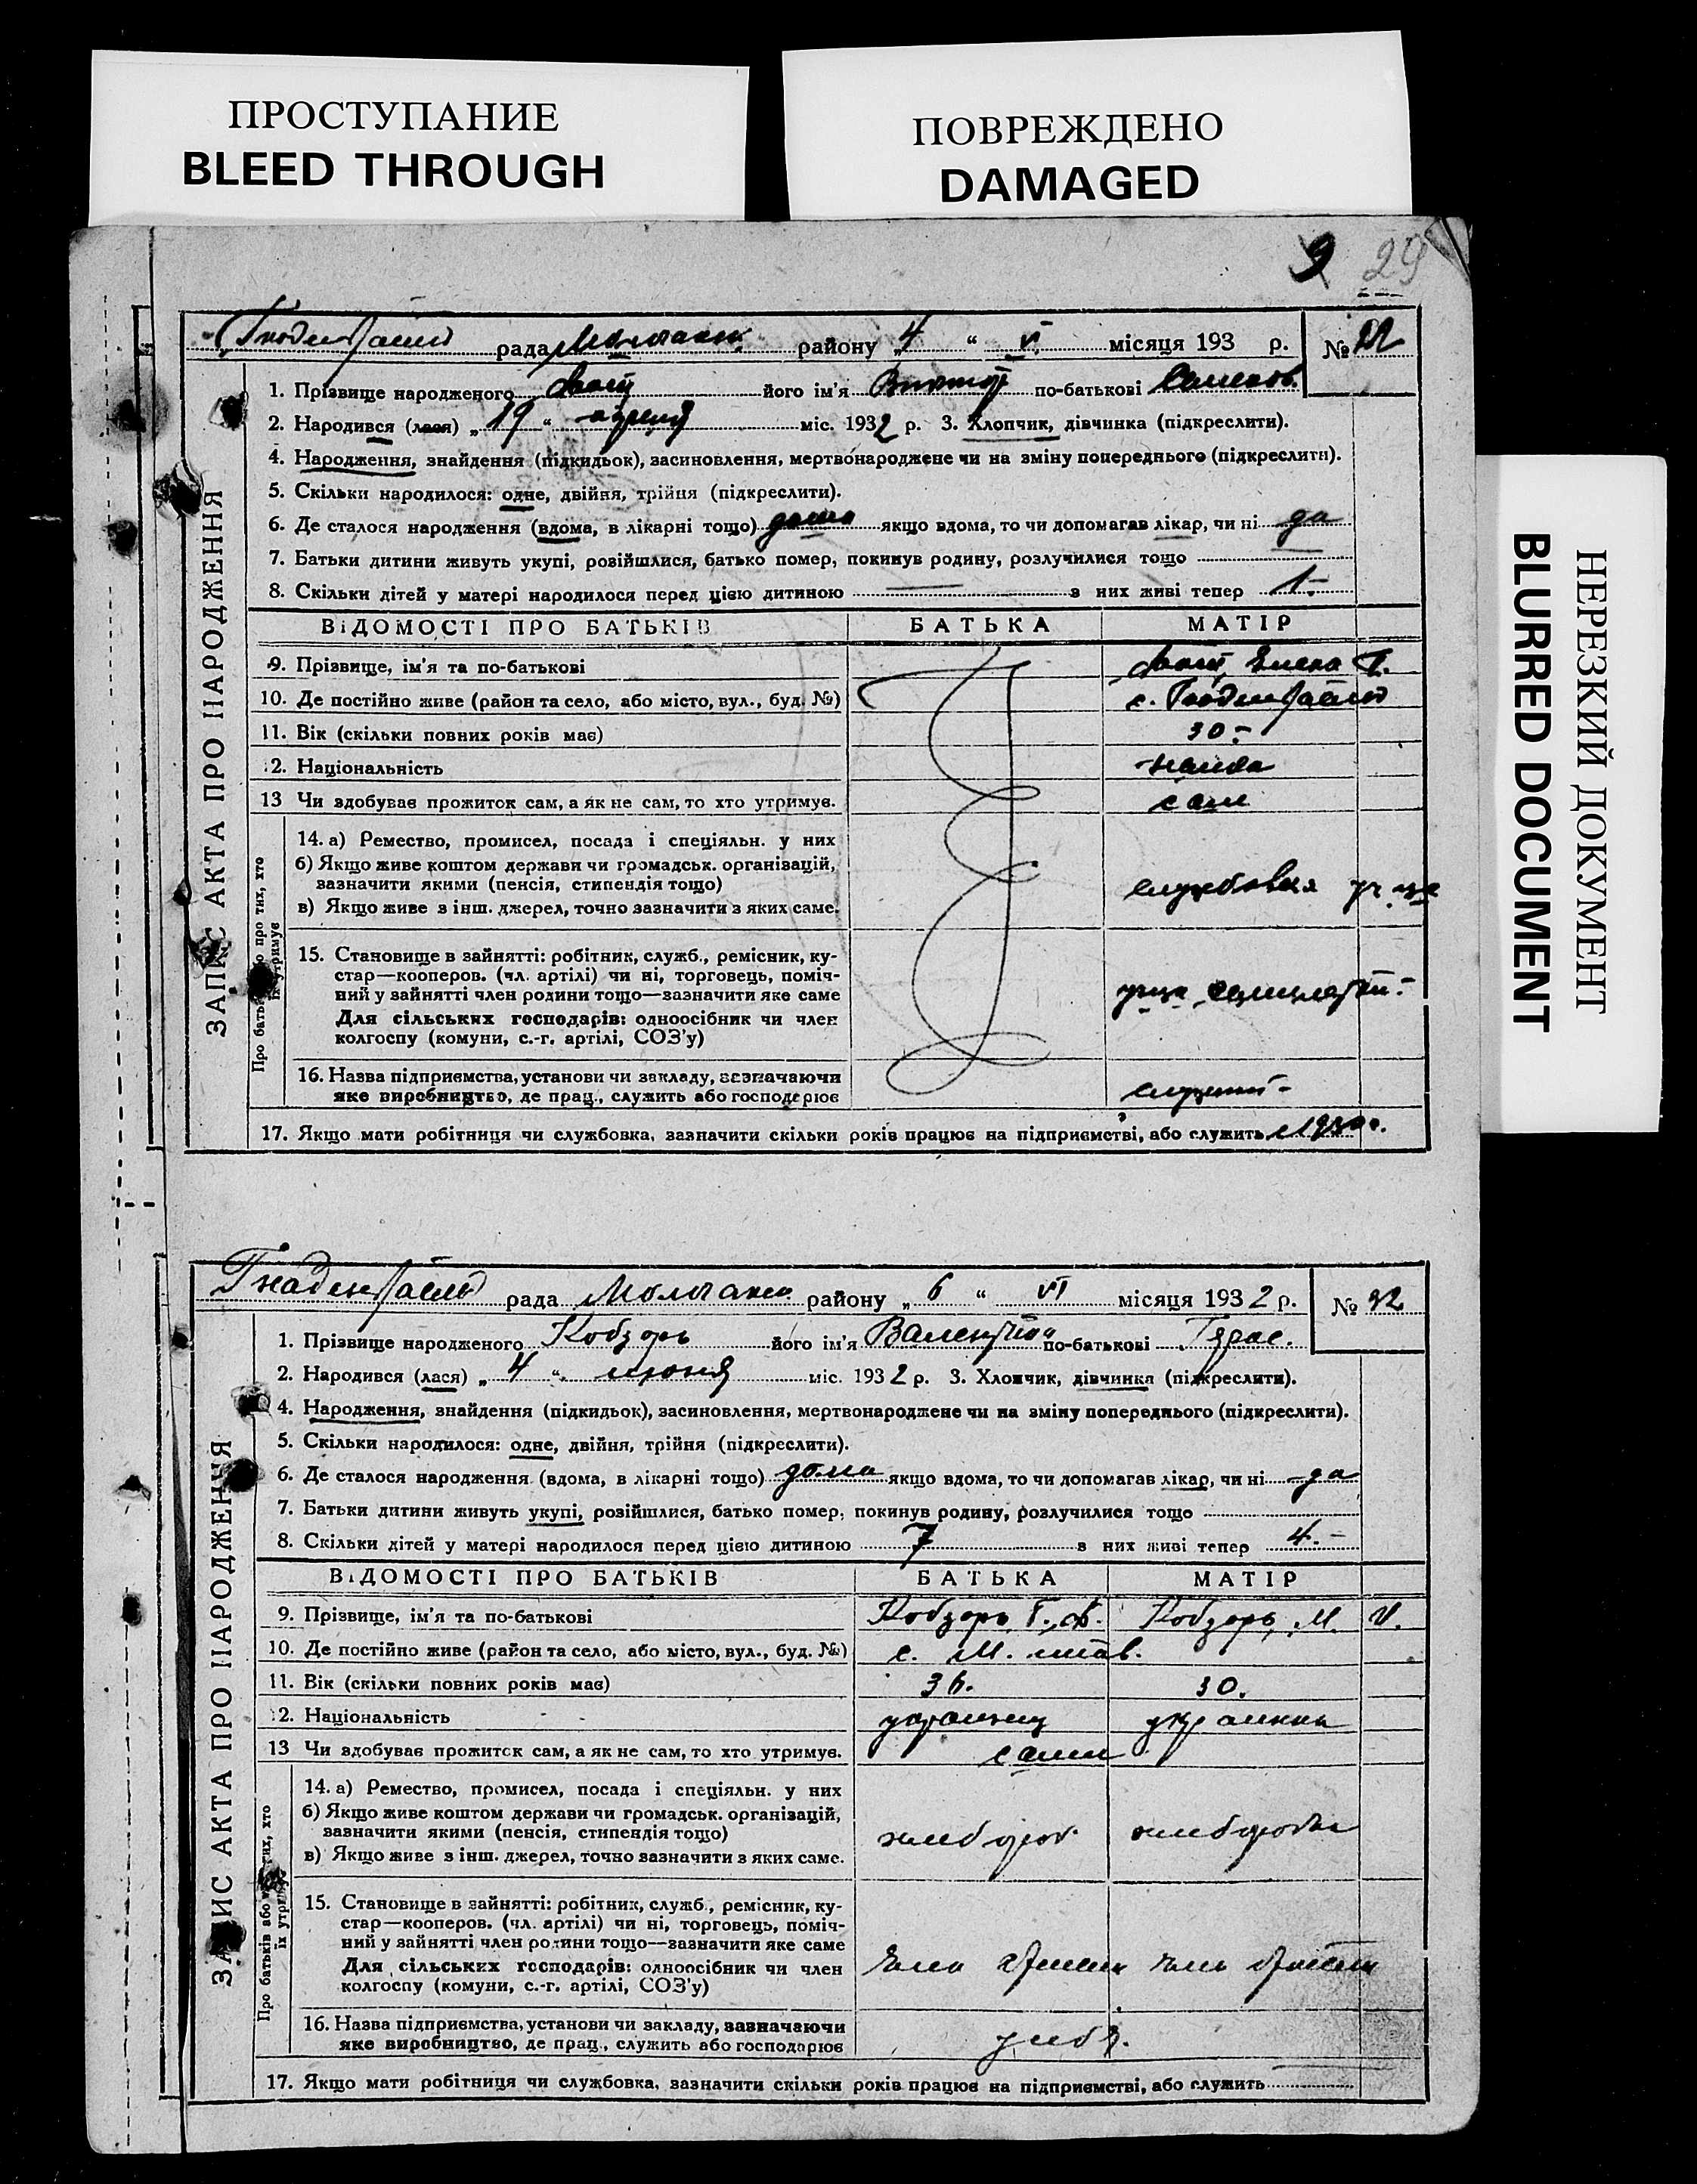 ПРОСТУПАНИЕ
BLEED THROUGH
ПОВРЕЖДЕНО
DAMAGED
НЕРЕЗКИЙ ДОКУМЕНТ
BLURRED DOCUMENT
9 29
рада районy „4 “ VI місяця 193 р. №
ЗАПИС АКТА ПРО НАРОДЖЕННЯ
1. Прізвище народженого його ім'я Виктор по-батькові Семенов.
2. Народився (лася) „19 “ апреля міс. 1932 р. 3. Хлопчик, дівчинка (підкреслити).
4. Народження, знайдення (підкидьок), засиновлення, мертвонароджене чи на зміну попереднього (підкреслити).
5. Скільки народилося: одне, двійня, трійня (підкреслити).
6. Де сталося народження (вдома, в лікарні тощо) дома якщо вдома, то чи допомагав лікар, чи ні да
7. Батьки дитини живуть укупі, розійшлися, батько помер, покинув родину, розлучилися тощо
8. Скільки дітей у матері народилося перед цією дитиною — з них живі тепер 1.-
ВІДОМОСТІ ПРО БАТЬКІВ БАТЬКА МАТІР
9. Прізвище, ім'я та по-батькові Елена
10. Де постійно живе (район та село, або місто, вул., буд. №) с. Гнаденфельд
11. Вік (скільки повних років має) 30.-
12. Національність немка
13 Чи здобуває прожиток сам, а як не сам, то хто утримує. сам
Про батьків або про тих, хто їх утримує
14. а) Ремество, промисел, посада і спеціяльн. у них
б) Якщо живе коштом держави чи громадськ. організацій,
зазначити якими (пенсія, стипендія тощо)
в) Якщо живе з інш. джерел, точно зазначити з яких саме.
15. Становище в зайнятті: робітник, служб., ремісник, ку-
стар—кооперов. (чл. артілі) чи ні, торговець, поміч-
ний у зайнятті член родини тощо—зазначити яке саме
Для сільських господарів: одноосібник чи член
колгоспу (комуни, с.-г. артілі, СОЗ'у)
16. Назва підприємства, установи чи закладу, зазначаючи
яке виробництво, де прац., служить або господарює
17. Якщо мати робітниця чи службовка, зазначити скільки років працює на підприємстві, або служить с 1930 г.
Гнаденфельд рада Молочанск району „6 “ VI місяця 1932 р. № 32
ЗАПИС АКТА ПРО НАРОДЖЕННЯ
1. Прізвище народженого Кобзорь його ім'я Валентина по-батькові Герас.
2. Народився (лася) „4 “ июня міс. 1932 р. 3. Хлопчик, дівчинка (підкреслити).
4. Народження, знайдення (підкидьок), засиновлення, мертвонароджене чи на зміну попереднього (підкреслити).
5. Скільки народилося: одне, двійня, трійня (підкреслити).
6. Де сталося народження (вдома, в лікарні тощо) дома якщо вдома, то чи допомагав лікар, чи ні да
7. Батьки дитини живуть укупі, розійшлися, батько помер, покинув родину, розлучилися тощо
8. Скільки дітей у матері народилося перед цією дитиною 7 з них живі тепер 4.-
ВІДОМОСТІ ПРО БАТЬКІВ БАТЬКА МАТІР
9. Прізвище, ім'я та по-батькові Кобзорь Г. Ф. Кобзорь М. И.
10. Де постійно живе (район та село, або місто, вул., буд. №) с. М.
11. Вік (скільки повних років має) 36. 30.
12. Національність украинец украинка
13 Чи здобуває прожиток сам, а як не сам, то хто утримує. сами
Про батьків або про тих, хто їх утримує
14. а) Ремество, промисел, посада і спеціяльн. у них
б) Якщо живе коштом держави чи громадськ. організацій,
зазначити якими (пенсія, стипендія тощо)
в) Якщо живе з інш. джерел, точно зазначити з яких саме.
хлебороб хлеборобка
15. Становище в зайнятті: робітник, служб., ремісник, ку-
стар—кооперов. (чл. артілі) чи ні, торговець, поміч-
ний у зайнятті член родини тощо—зазначити яке саме
Для сільських господарів: одноосібник чи член
колгоспу (комуни, с.-г. артілі, СОЗ'у)
член артели член артели
16. Назва підприємства, установи чи закладу, зазначаючи
яке виробництво, де прац., служить або господарює
17. Якщо мати робітниця чи службовка, зазначити скільки років працює на підприємстві, або служить